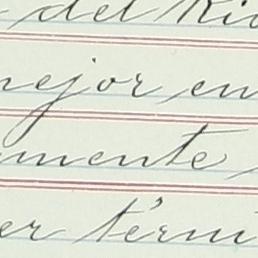 del Rio
mejor en
mente
er térmi